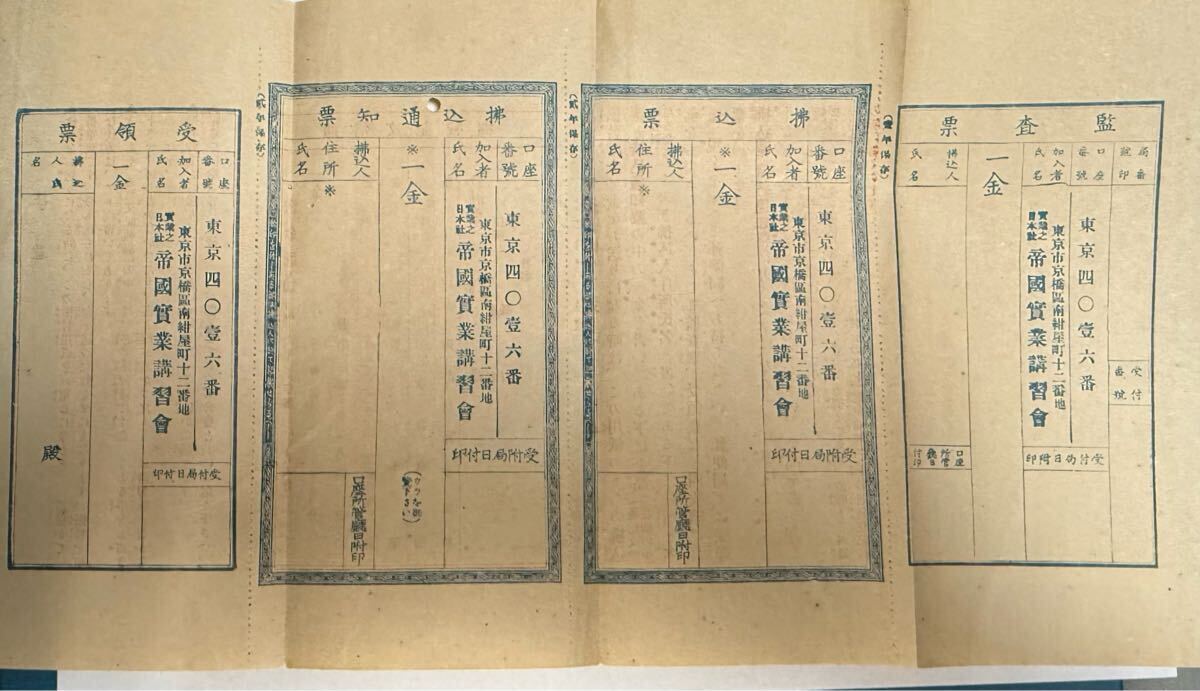 監査票
受付番號
口座番號
東京四〇壹六番
加入者氏名
東京市京橋區南紺屋町十二番地
實業之日本社
帝國實業講習會
受付局日附印
一金
拂込人
氏名
(壹年保存)
拂込票
口座番號
東京四〇壹六番
加入者氏名
東京市京橋區南紺屋町十二番地
實業之日本社
帝國實業講習會
受附局日付印
※一金
拂込人
住所氏名
※
口座所管廳日附印
(貳年保存)
拂込通知票
口座番號
東京四〇壹六番
加入者氏名
東京市京橋區南紺屋町十二番地
實業之日本社
帝國實業講習會
受附局日付印
※一金
拂込人
住所氏名
※
口座所管廳日附印
(貳年保存)
受領票
口座番號
東京四〇壹六番
加入者氏名
東京市京橋區南紺屋町十二番地
實業之日本社
帝國實業講習會
受付局日付印
一金
拂込人氏名
殿